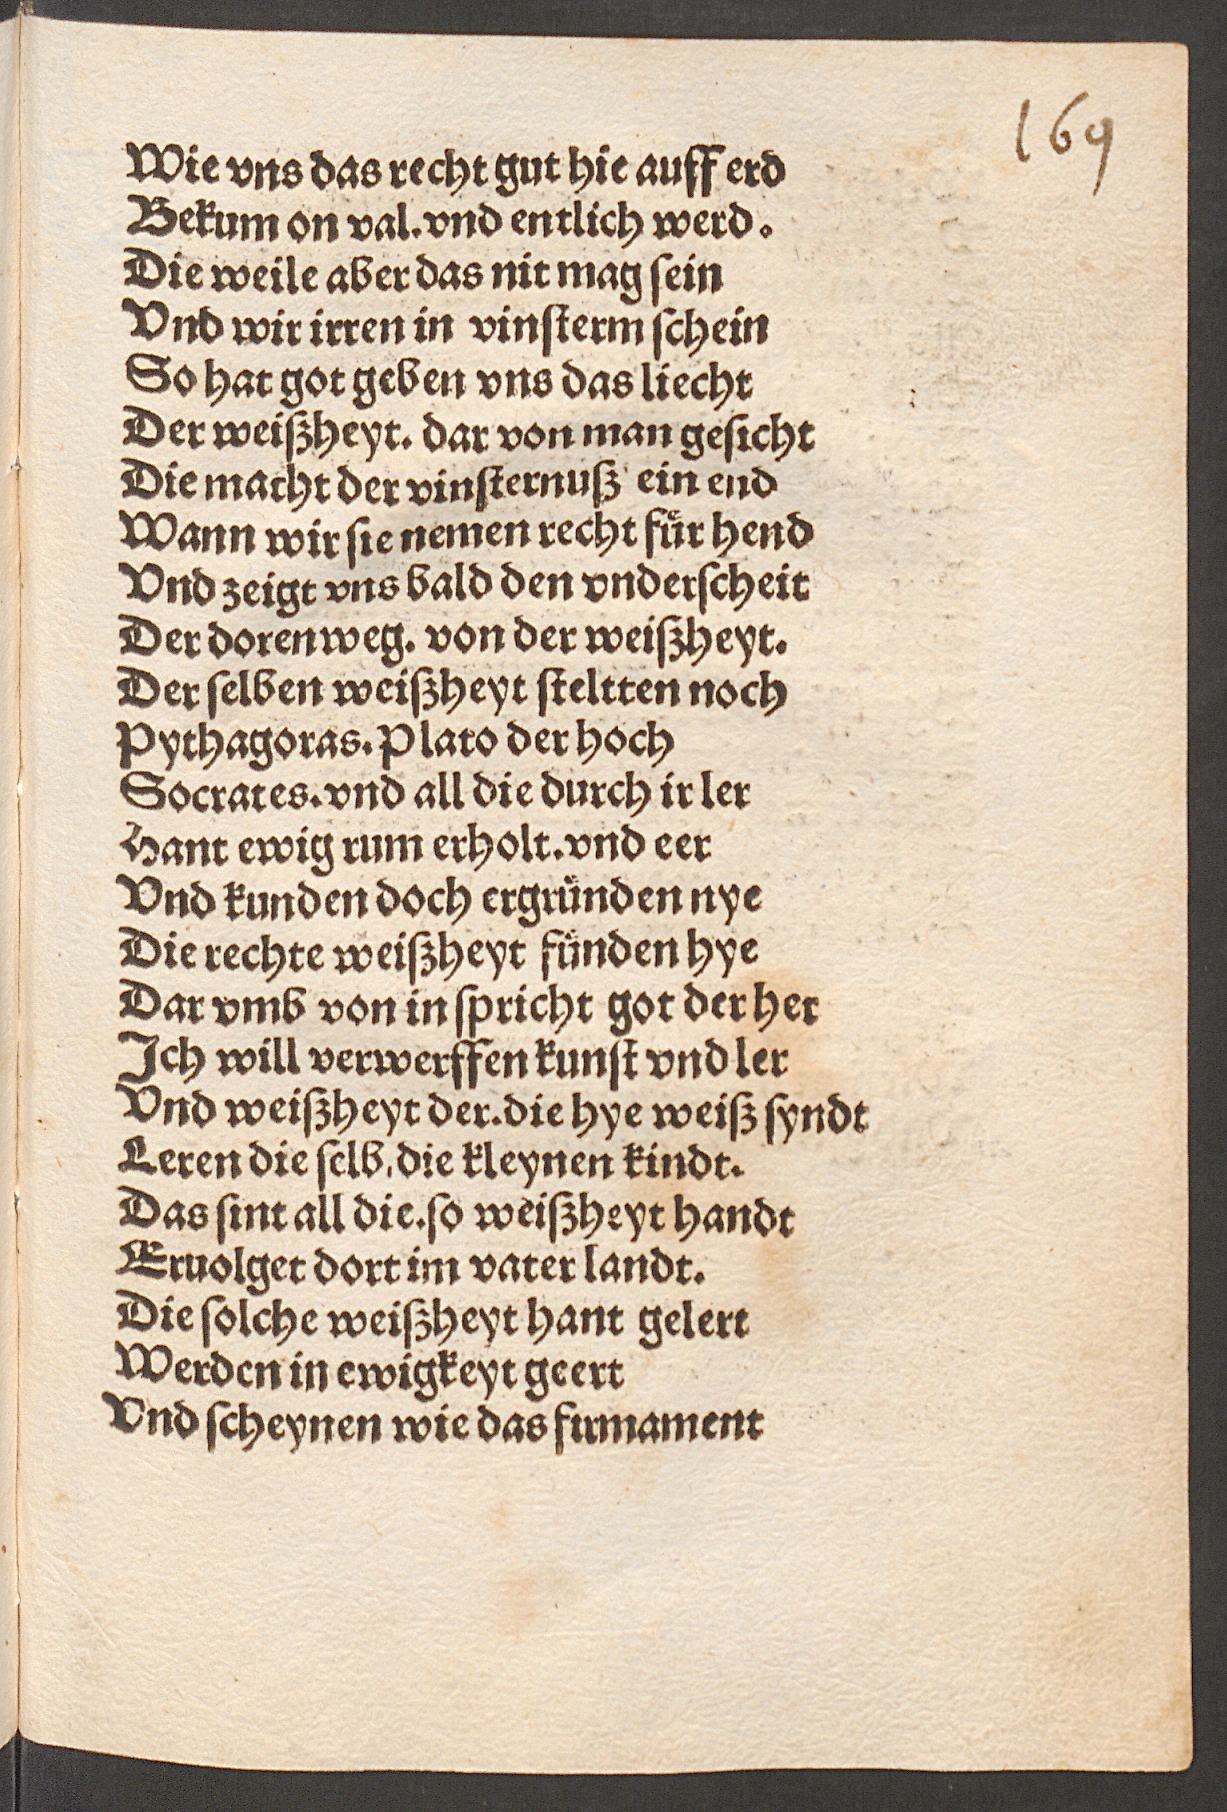 169
Wie vns das recht gut hie auff erd
Bekum on val. vnd entlich werd.
Die weile aber das nit mag ſein
Vnd wir irren in vinſterm ſchein
So hat got geben vns das liecht
Der weiſzheyt. dar von man geſicht
Die macht der vinſternuſz ein end
Wann wir ſie nemen recht fuͤr hend
Vnd zeigt vns bald den vnderſcheit
Der doren weg. von der weiſzheyt.
Der ſelben weiſzheyt ſteltten noch
Pythagoras. Plato der hoch
Socrates. vnd all die durch ir ler
Hant ewig rum erholt. vnd eer
Vnd kunden doch ergruͤnden nye
Die rechte weiſzheyt fuͤnden hye
Dar vmb von in ſpricht got der her
Ich will verwerffen kunſt vnd ler
Vnd weiſzheyt der. die hye weiſz ſyndt
Leren die ſelb. die kleynen kindt.
Das ſint all die. ſo weiſzheyt handt
Eruolget dort im vater landt.
Die ſolche weiſzheyt hant gelert
Werden in ewigkeyt geert
Vnd ſcheynen wie das firmament